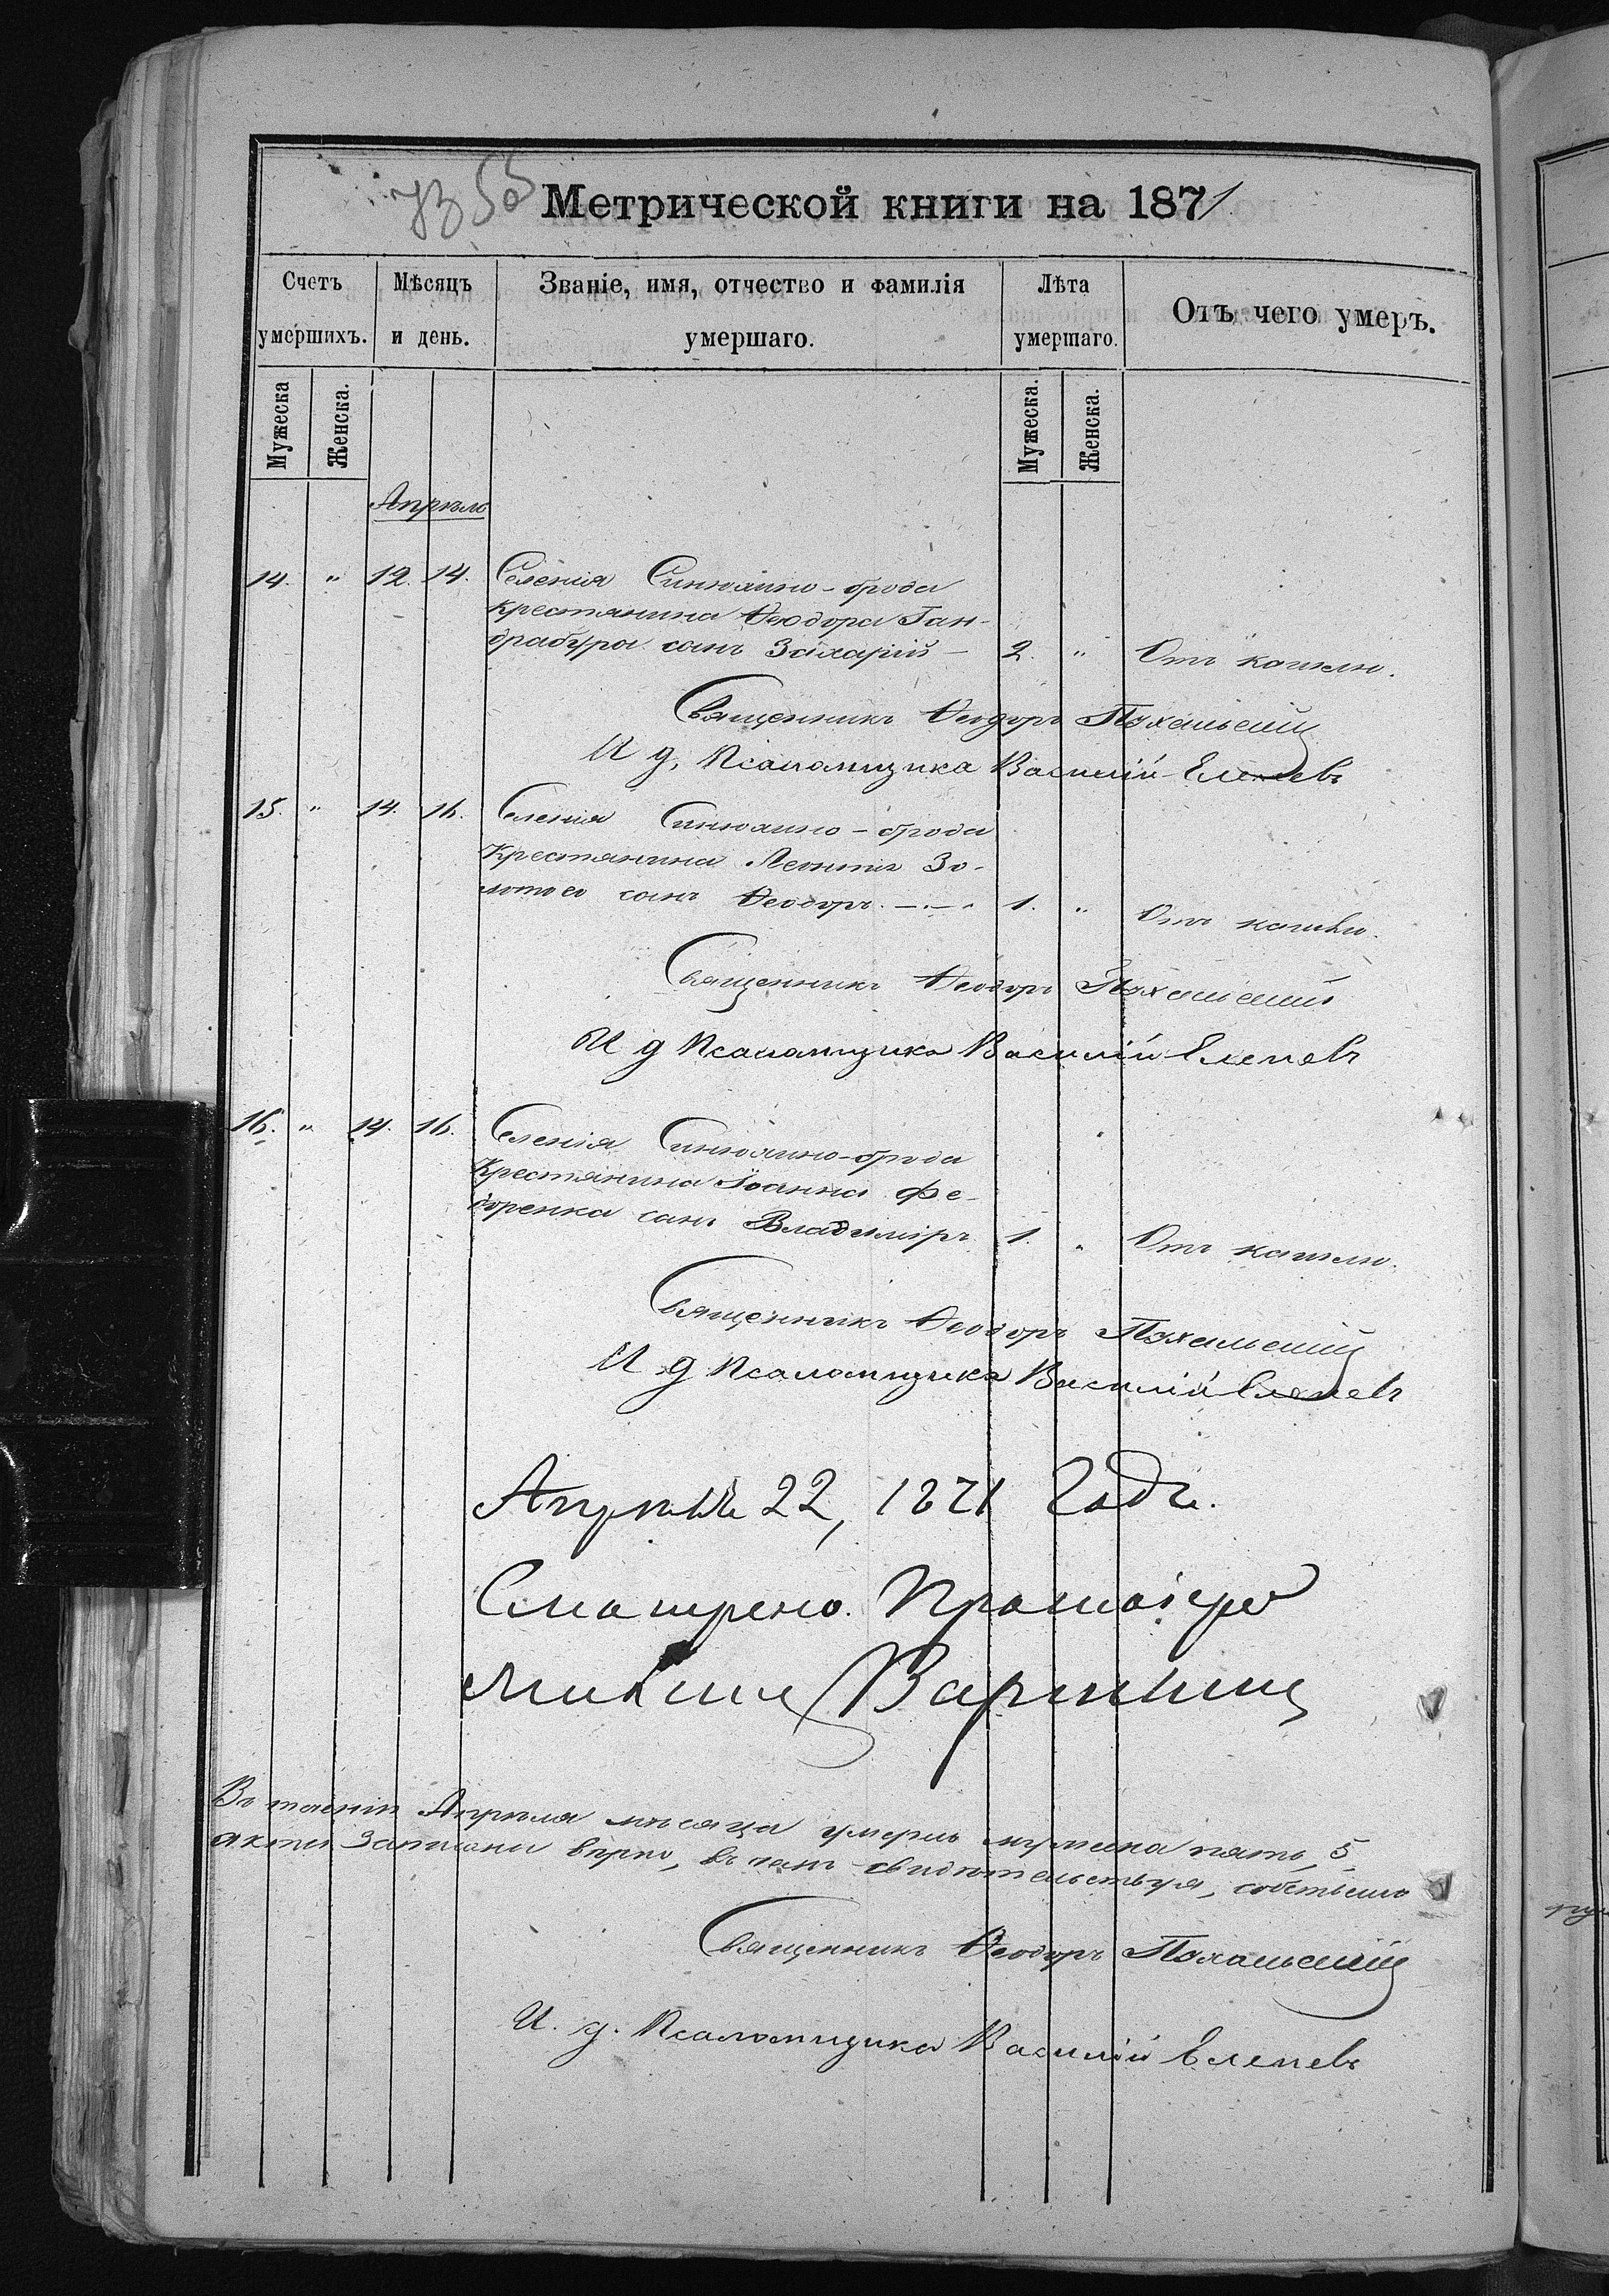 Метрической книги на 1871
Счетъ умершихъ.
Мѣсяцъ и день.
Званіе, имя, отчество и фамилія умершаго.
Лѣта умершаго.
Отъ чего умеръ.
Мужеска
Женска.
Мужеска.
Женска.
Апрѣль
14. " 12. 14. Селенія Синюхино-брода
крестянина Ѳеодора Ган-
драбуры сынъ Захарій — 2. " Отъ кашлю.
Священникъ Ѳеодоръ
И д, Псаломщика Василій
15. " 14. 16. Селенія Синюхино-брода
Крестянина Леонтія Зо-
лотого сынъ Ѳеодоръ. 1. " Отъ кашлю.
Священникъ Ѳеодоръ
И д Псаломщика Василій
16. " 14. 16. Селенія Синюхино-брода
Крестянина Іоанна Фе-
доренка сынъ Владиміръ 1. " Отъ кашлю.
Священникъ Ѳеодоръ
И д Псаломщика Василій
Апрѣля 22, 1871 Года.
Смотрено. Протоіерей
Въ теченіи Апрѣля мѣсяца умерло мужеска пять, 5
акты записаны вѣрно, въ чемъ свидѣтельствуя,
Священникъ Ѳеодоръ
И. д. Псаломщика Василій